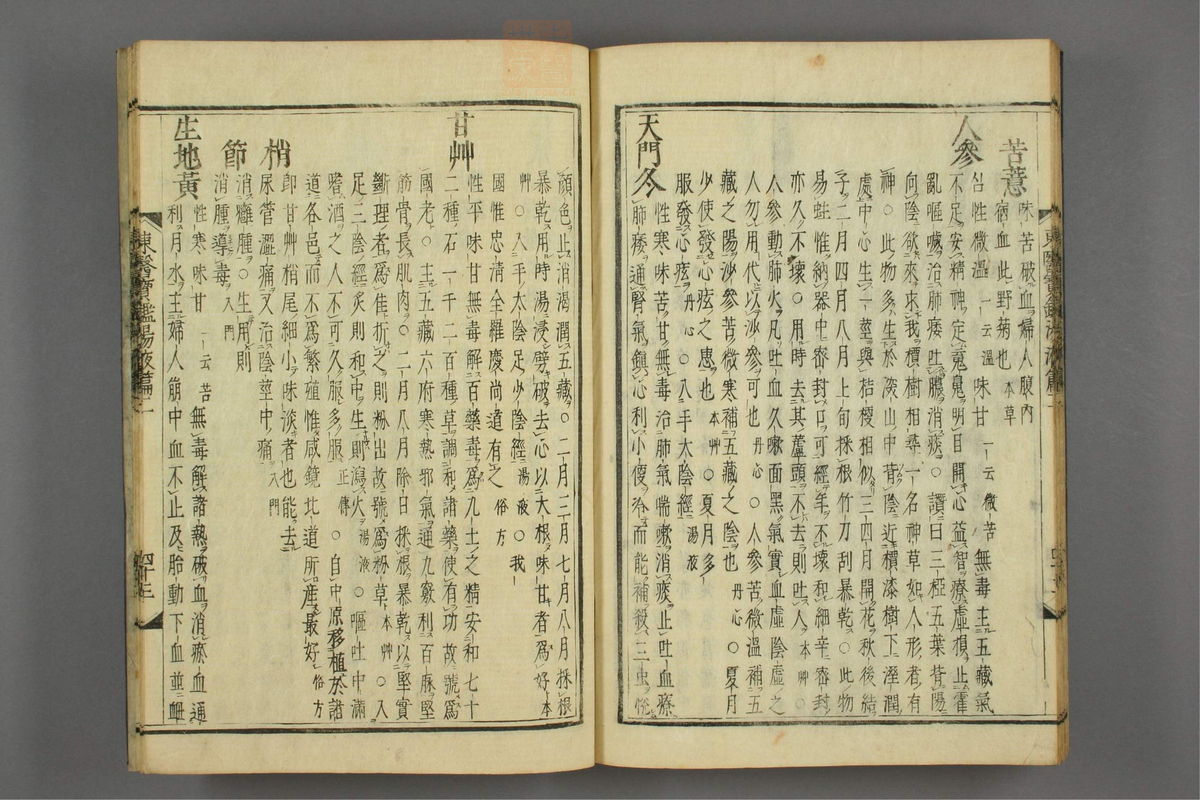 苦薏
味苦破血婦人腹內
宿血此野菊也 本草
人參
심 性微溫 一云溫 味甘 一云微苦 無毒主五藏氣
不足安精神定魂魄明目開心益智療虛損止霍
亂嘔噦治肺痿吐膿消痰○讚曰三椏五葉背陽
向陰欲來求我椵樹相尋一名神草如人形者有
神○此物多生於深山中背陰近椵漆樹下溼潤
處中心生一莖與桔梗相似三四月開花秋後結
子二月四月八月上旬採根竹刀刮暴乾○此物
易蛀惟納器中密封口可經年不壞和細辛密封
亦久不壞○用時去其蘆頭不去則吐人 本艸 ○
人參動肺火凡吐血久嗽面黑氣實血虛陰虛之
人勿用代以沙參可也 丹心 ○人參苦微溫補五
藏之陽沙參苦微寒補五藏之陰也 丹心 ○夏月
少使發心痃之患也 本艸 ○夏月多
服發心痃 丹心 ○入手太陰經 湯液
天門冬
性寒味苦甘無毒治肺氣喘嗽消痰止吐血療
肺痿通腎氣鎭心利小便冷而能補殺三虫悅
顔色止消渴潤五藏○二月三月七月八月採根
暴乾用時湯浸劈破去心以大根味甘者爲好 本
艸 ○入手太陰足少陰經 湯液 ○我
國惟忠淸全羅慶尚道有之 俗方
甘艸
性平味甘無毒解百藥毒爲九土之精安和七十
二種石一千二百種草調和諸藥使有功故號爲
國老○主五藏六府寒熱邪氣通九竅利百脉堅
筋骨長肌肉○二月八月除日採根暴乾以堅實
斷理者爲佳折之則粉出故號爲粉草 本艸 ○入
足三陰經炙則和中生則瀉火 湯液 ○嘔吐中滿
嗜酒之人不可久服多服 正傳 ○自中原移植於諸
道各邑而不爲繁殖惟咸鏡北道所産最好 俗方
梢
卽甘艸梢尾細小味淡者也能去
尿管澀痛又治陰莖中痛 入門
節
消癰腫○生用則
消腫導毒 入門
生地黃
性寒味甘 一云苦 無毒解諸熱破血消瘀血通
利月水主婦人崩中血不止及胎動下血並衄
東醫寶鑑湯液篇二